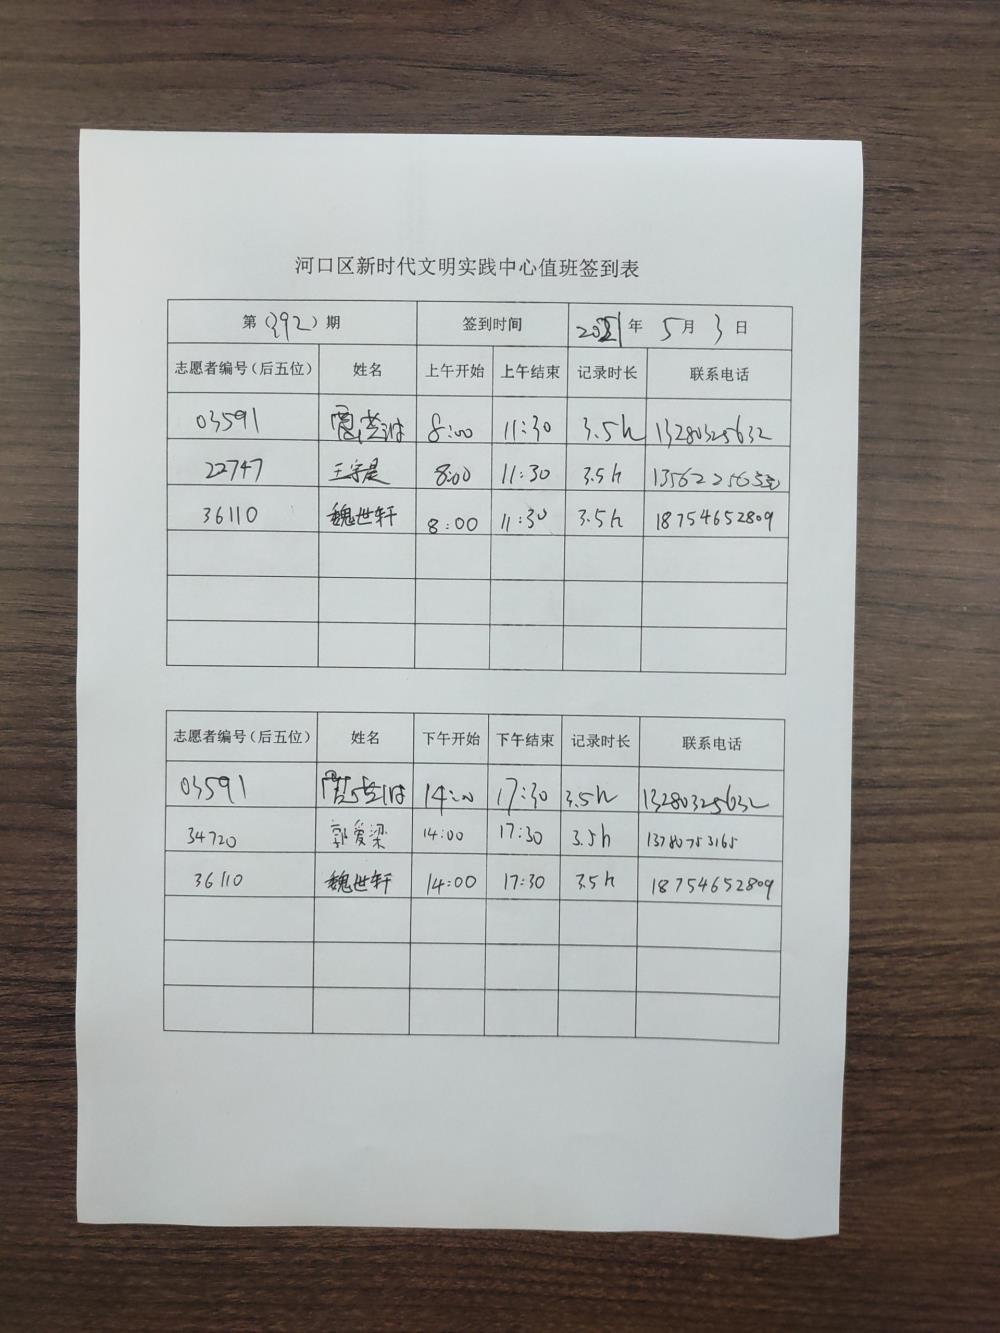 河口区新时代文明实践中心值班签到表
第（392）期 签到时间 2021年 5月 3日
志愿者编号（后五位） 姓名 上午开始 上午结束 记录时长 联系电话
03591 8:00 11:30 3.5h 13280325632
22747 王宇晨 8:00 11:30 3.5h
36110 魏世轩 8:00 11:30 3.5h 18754652809
志愿者编号（后五位） 姓名 下午开始 下午结束 记录时长 联系电话
03591 14:00 17:30 3.5h 13280325632
34720 郭爱梁 14:00 17:30 3.5h 13780753165
36110 魏世轩 14:00 17:30 3.5h 18754652809